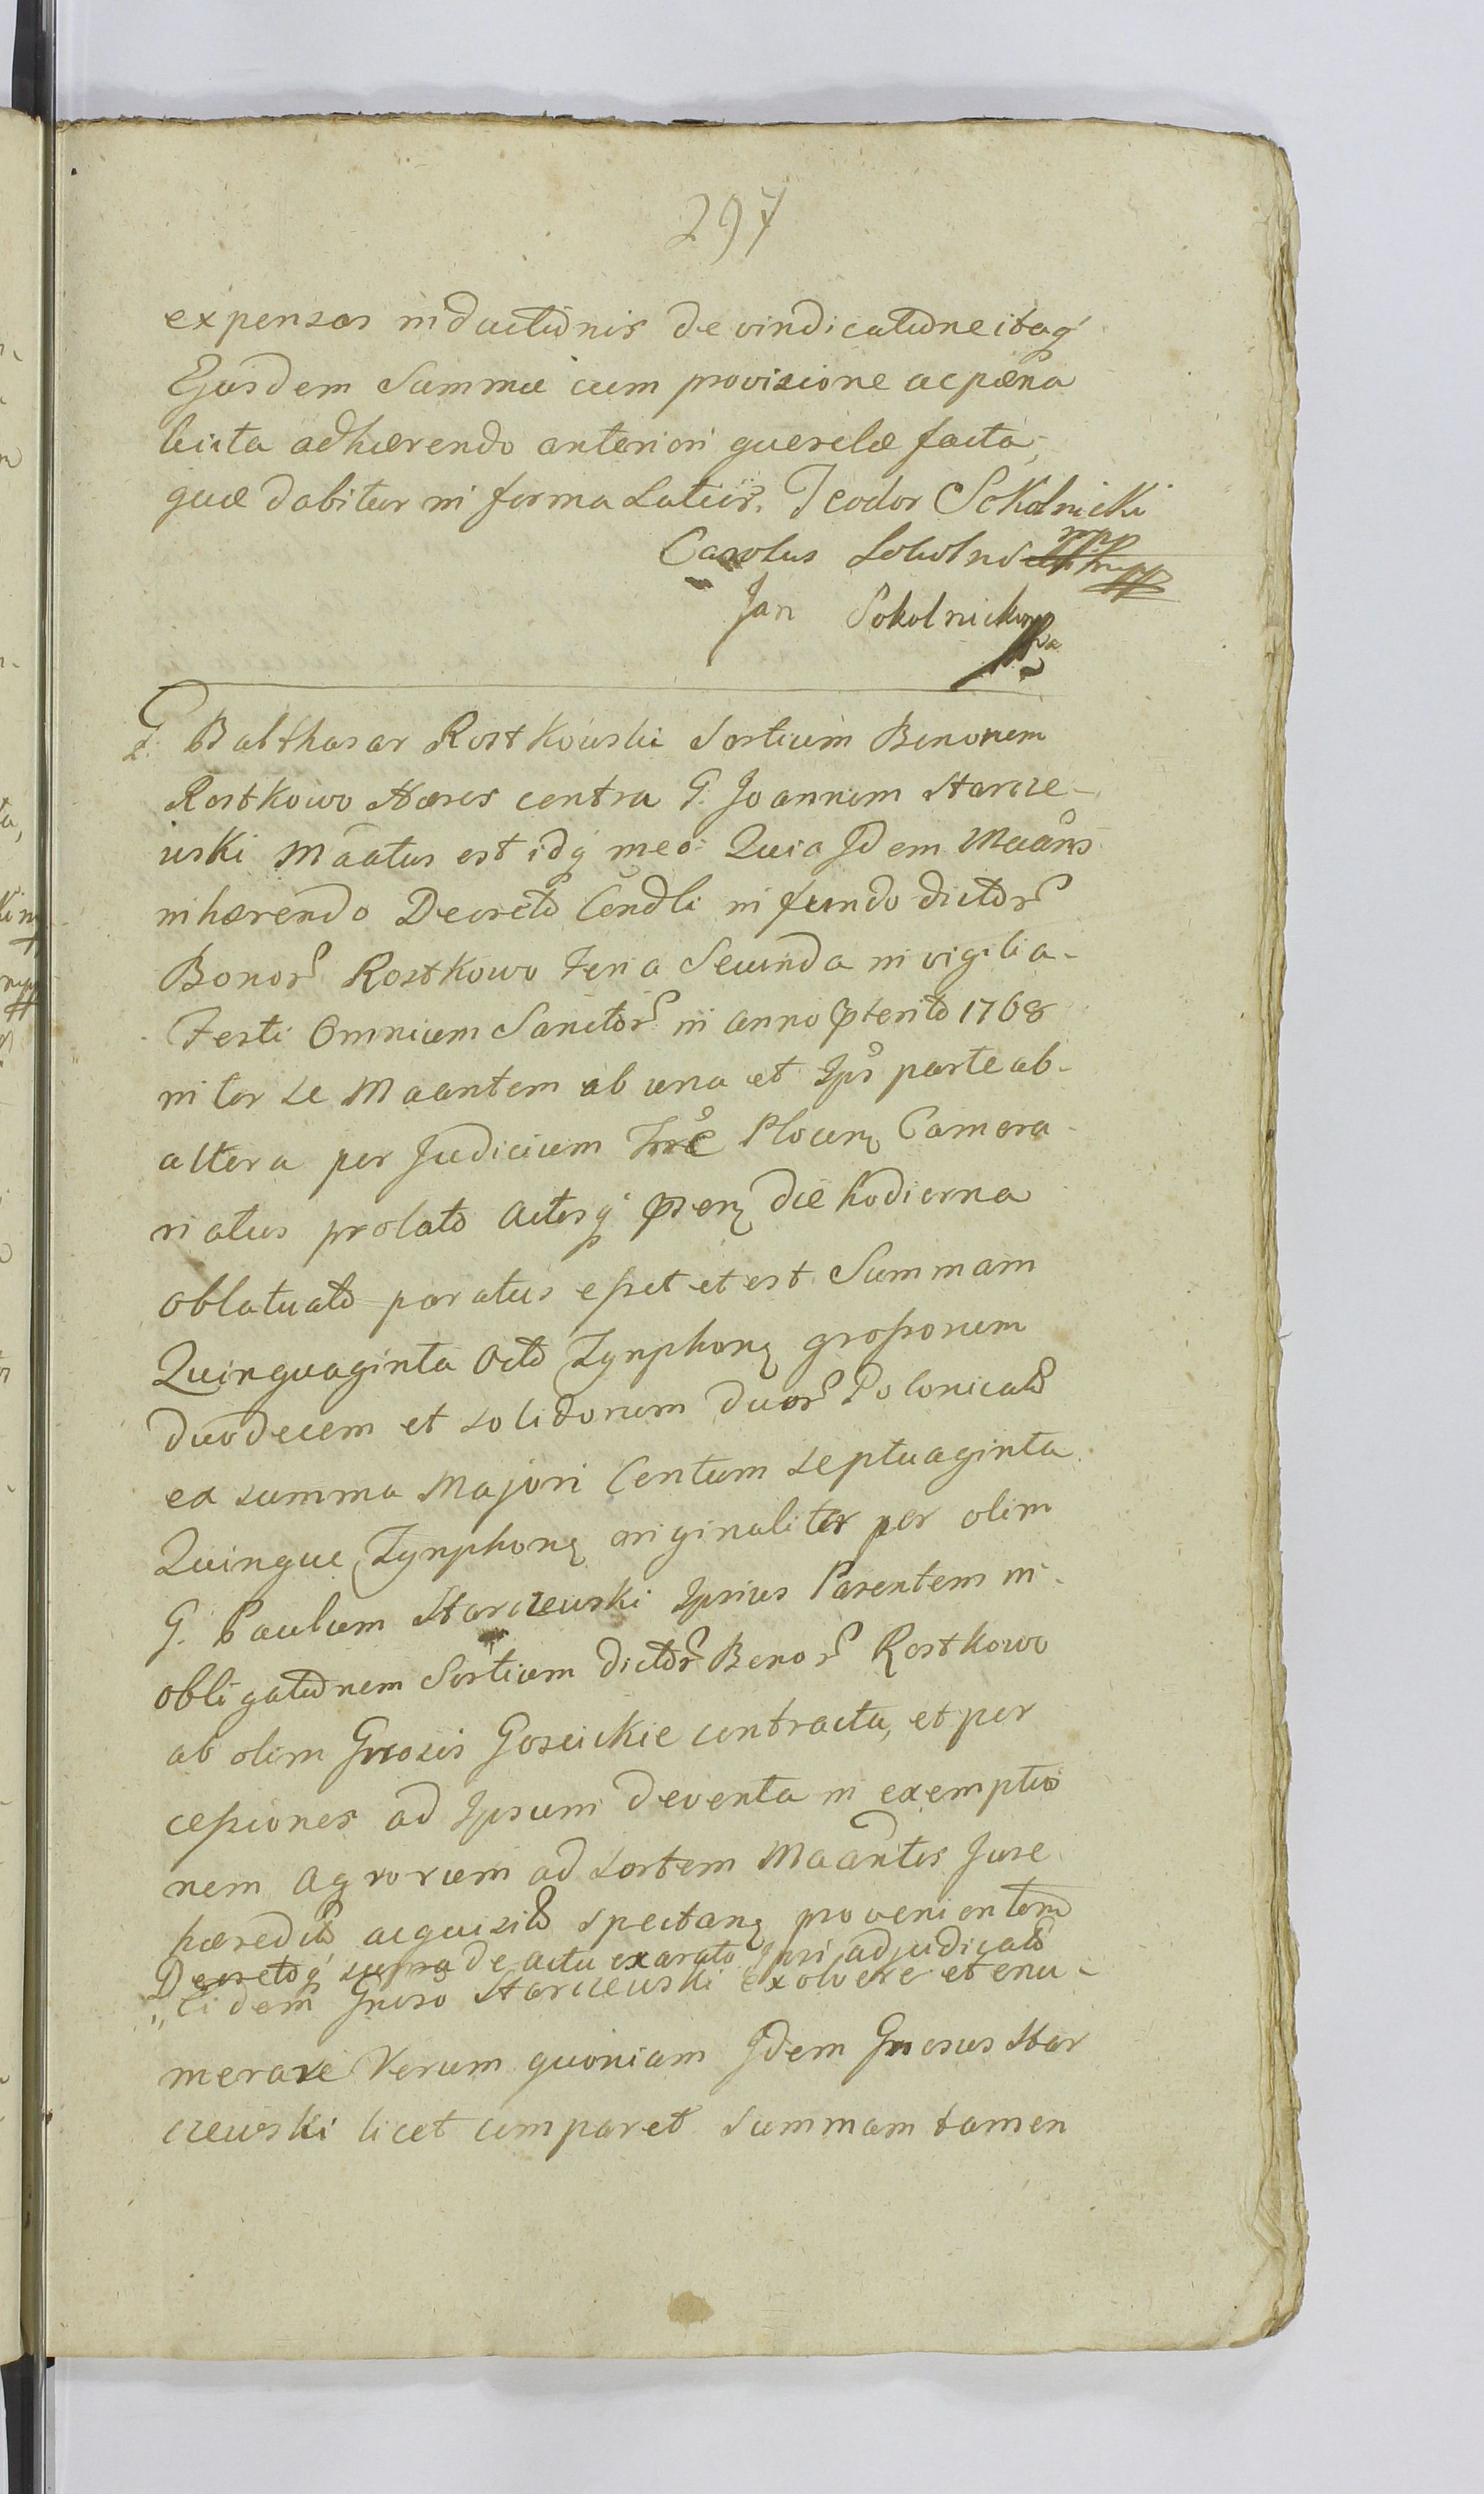 297
expensas inductionis de vindicatione itaq́
Ejusdem Summæ cum provisione ac pæna
luita adhærendo anteriori querelæ facta,
quæ dabitur in forma Latiori. Teodor Sokolnicki
mpp
Carolus Sokolnicki mpp
Jan Sokolnicki mpp
G. Balthasar Rostkowski Sortium Bonorum
Rostkowo Hæres contra G. Joannem Starcze-
wski Maatus est idq́ meo: Quia Idem Maans
inhærendo Decreto Condli in fundo dictor
Bonor Rostkowo Feria Secunda in vigilia-
Festi Omnium Sanctor in anno pterito 1768
inter se Maantem ab una et Ipsũ parte ab-
altera per Judicium Trae Plocen Camera-
riatus prolato Actisq́ psen die hodierna
oblatuato paratus esset et est Summam
Quinquaginta Octo Tynphon grossorum
duodecem et solidorum duor Polonicalo
ex summa Majori Centum Septuaginta
Quinque Tynphon originaliter per olim
G. Paulum Starczewski Ipsius Parentem in-
obligationem Sortium dictor Bonor Rostkowo
ab olim Gnosis Goscickie contracta, et per
cessiones ad Ipsum deventa in exemptio
nem Agrorum ad Sortem Maantis Jure
hæredito acquisito spectan provenientem
Decretoq́ supra de actu exarato Ipsi adjudicato
„Eidem Gnoso Starczewski exolvere et enu-
merare Verum quoniam Idem Gnosus Star
czewski licet comparet Summam tamen